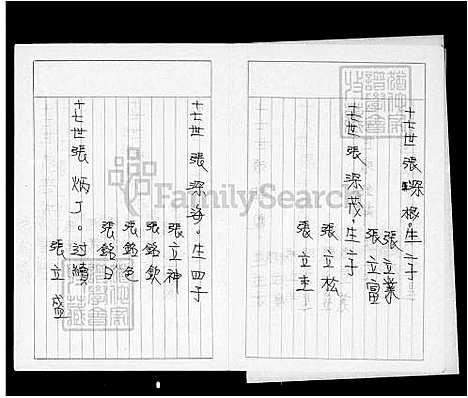 十七世張深根生二子
張立業
張立富
十七世張深茂。生二子
張立松
張立圭
十七世張深海。生四子
張立神
張銘欽
張銘色
張銘日
十七世張炳丁。过續
張立盛
FamilySearch